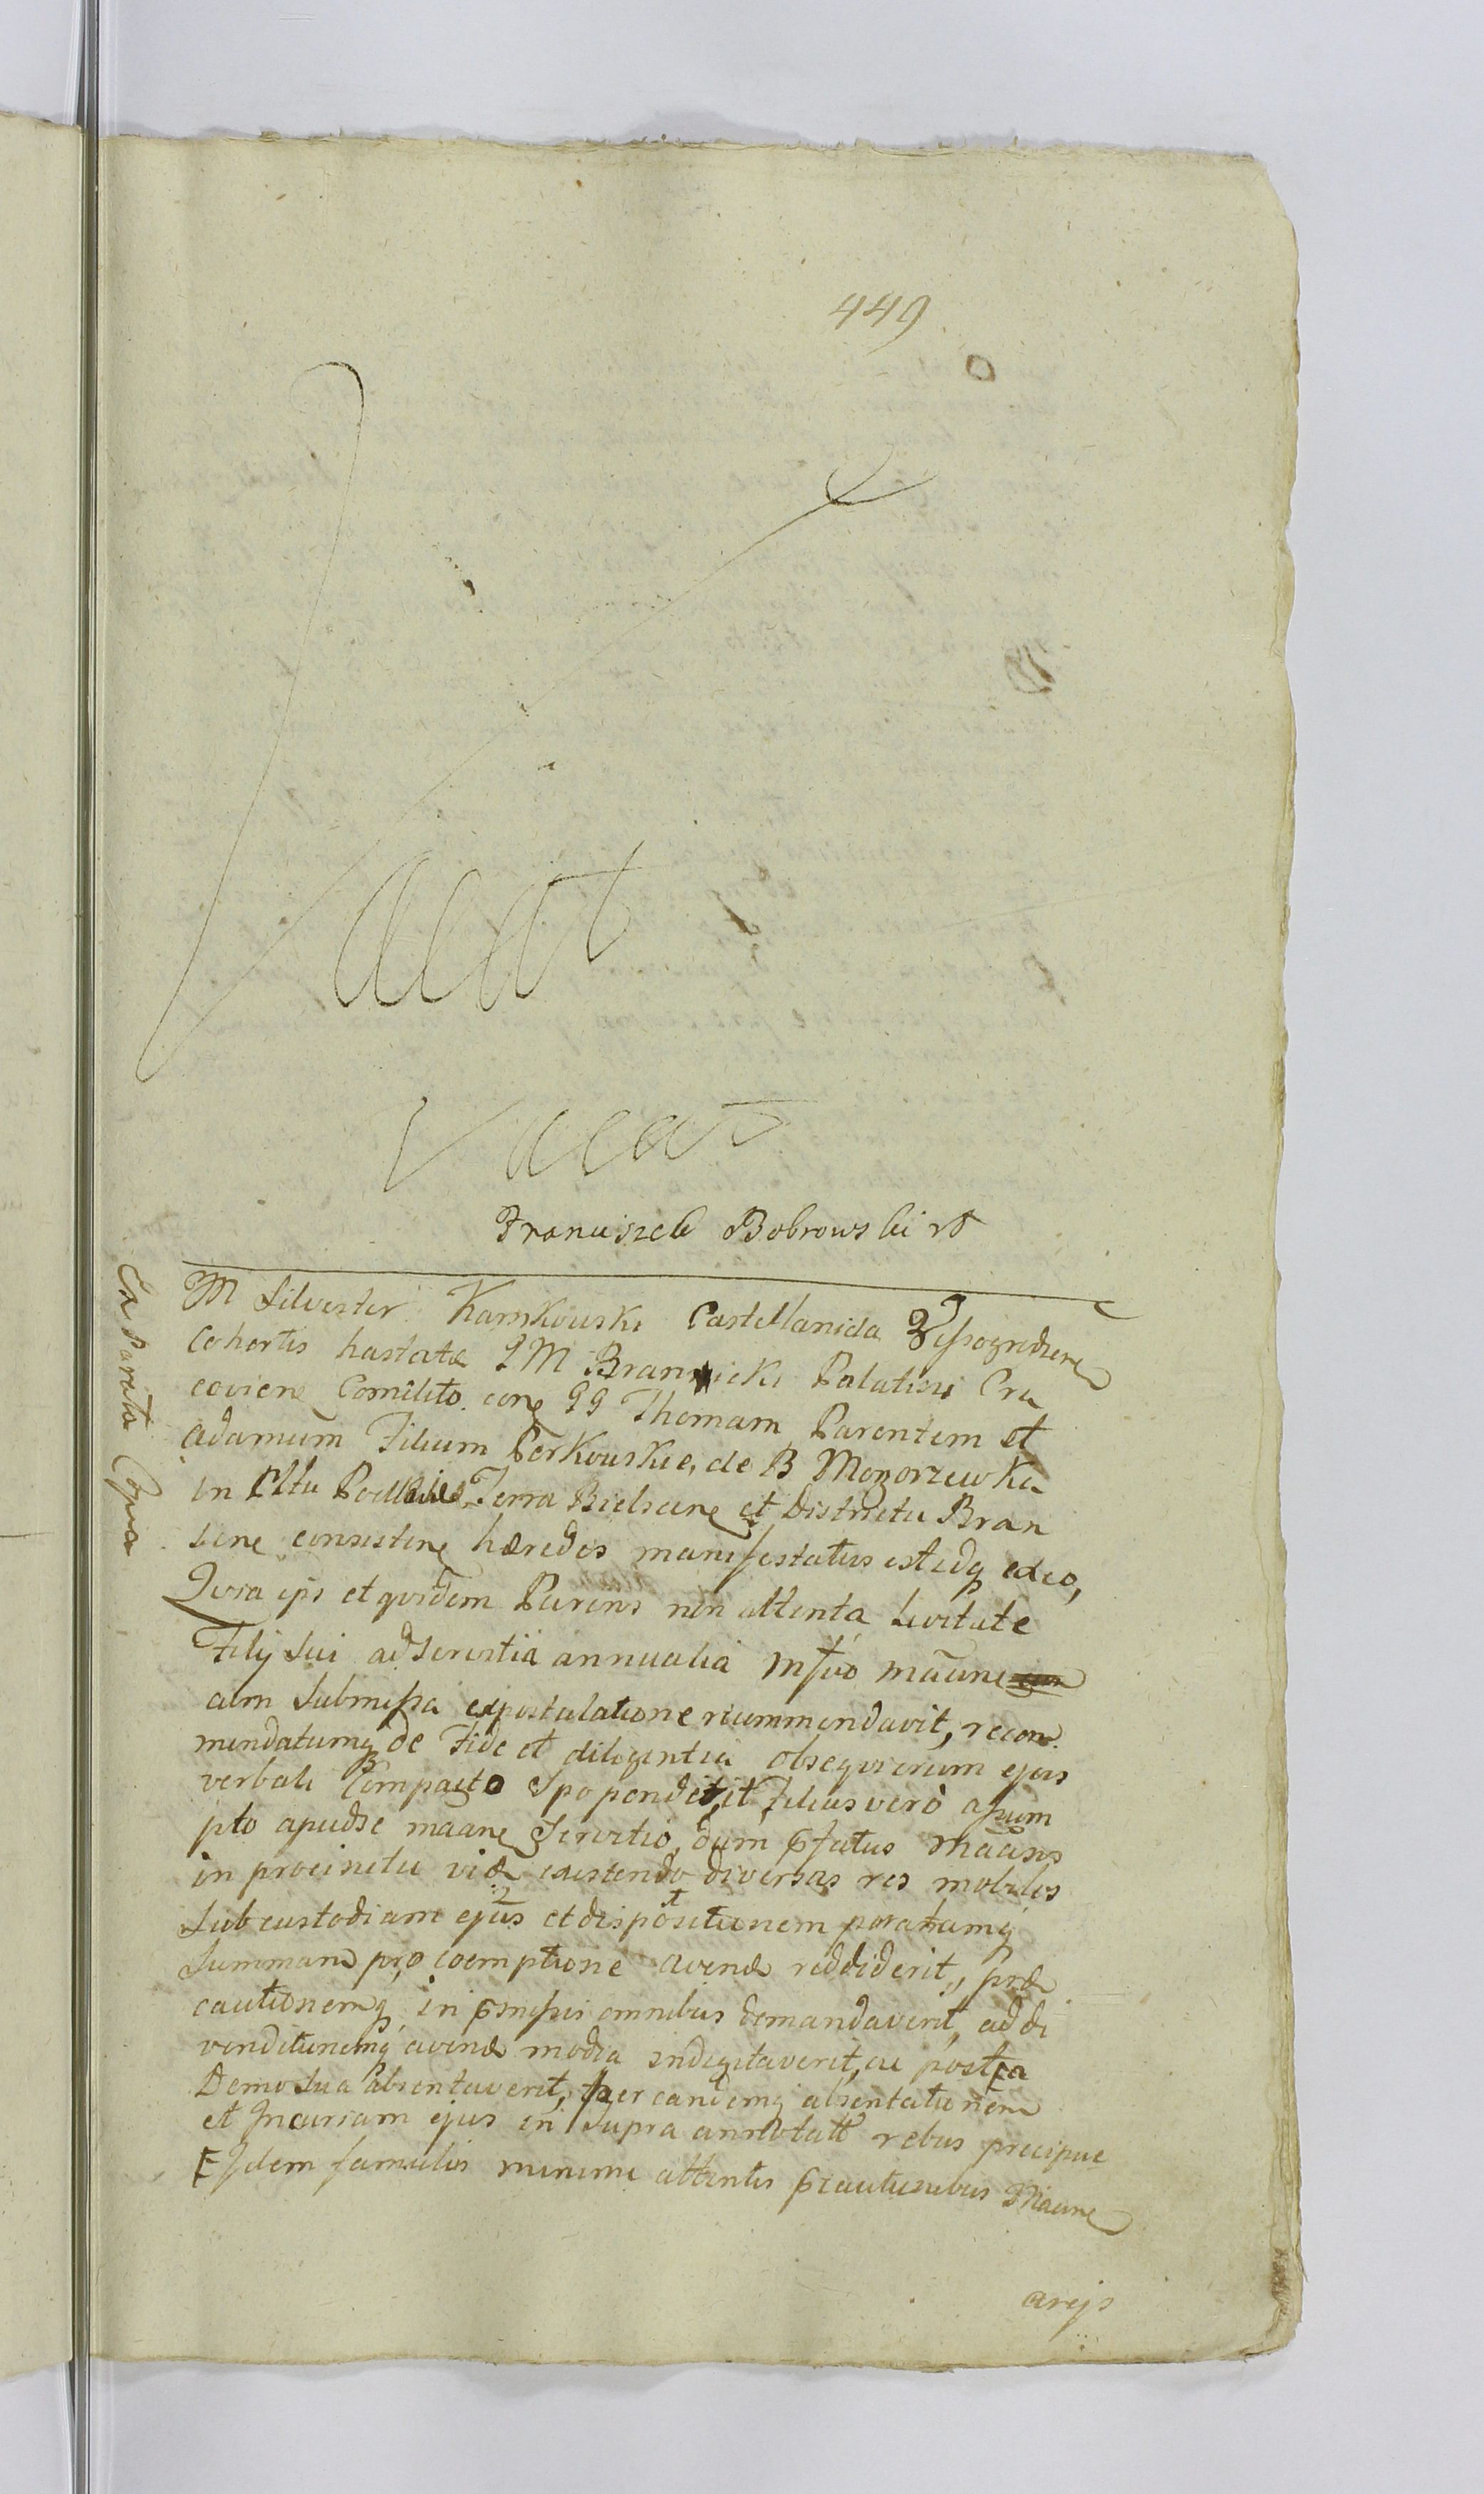 449
Vacat
Vacat
Franciszek Bobrowski
M Silvester Kamkouski Castellanida
Cohortis hastatæ Branicki Palatini Cra
coviene Comilito cone GG Thomam Parentem et
Adamum Filium Perkouskie, de B Mozorzewka
in Terra Bielscene et Districtu Bran
scene consistene hæredes manifestatus est idq ex eo,
Quia ipsi et quidem Parens non attenta levitate
Filij Sui ad Servitia annualia maune
cum Submissa expostulatione recummendavit, recom
mendatumq de Fide et diligentia obsequiorum ejus
verbali Compacto Spopendit, et Filius verò assum
pto apud se maane Servitio, dum maans
in procinctu viæ existendo diversas res mobiles
Sub custodiam ejus et dispositionem
Summam pro coemptione avenæ reddiderit, præ
cautionemq in omnibus demandaverit, ad di
venditionemq avenæ media indigitaverit, ac postea
Domo Sua absentaverit, per eandemq absentationem
et Incuriam ejus in Supra annotatt rebus precipue
Ejdem famulis minime attentis
arijs
Extradita Copia